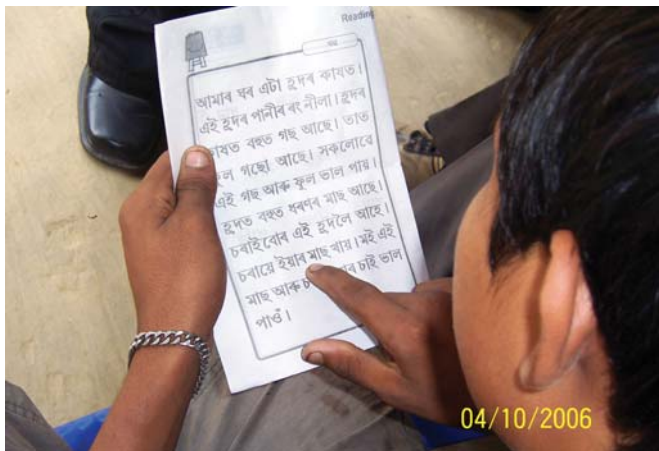 Reading
আমাৰ ঘৰ এটা হ্ৰদৰ কাষত।
এই হ্ৰদৰ পানীৰ ৰং নীলা। হ্ৰদৰ
কাষত বহুত গছ আছে। তাত
ফুল গছো আছে। সকলোৱে
এই গছ আৰু ফুল ভাল পায়।
হ্ৰদত বহুত ধৰণৰ মাছ আছে।
চৰাইবোৰ এই হ্ৰদলৈ আহে।
চৰায়ে ইয়াৰ মাছ খায়। মই এই
মাছ আৰু চাই ভাল
পাওঁ।
04/10/2006